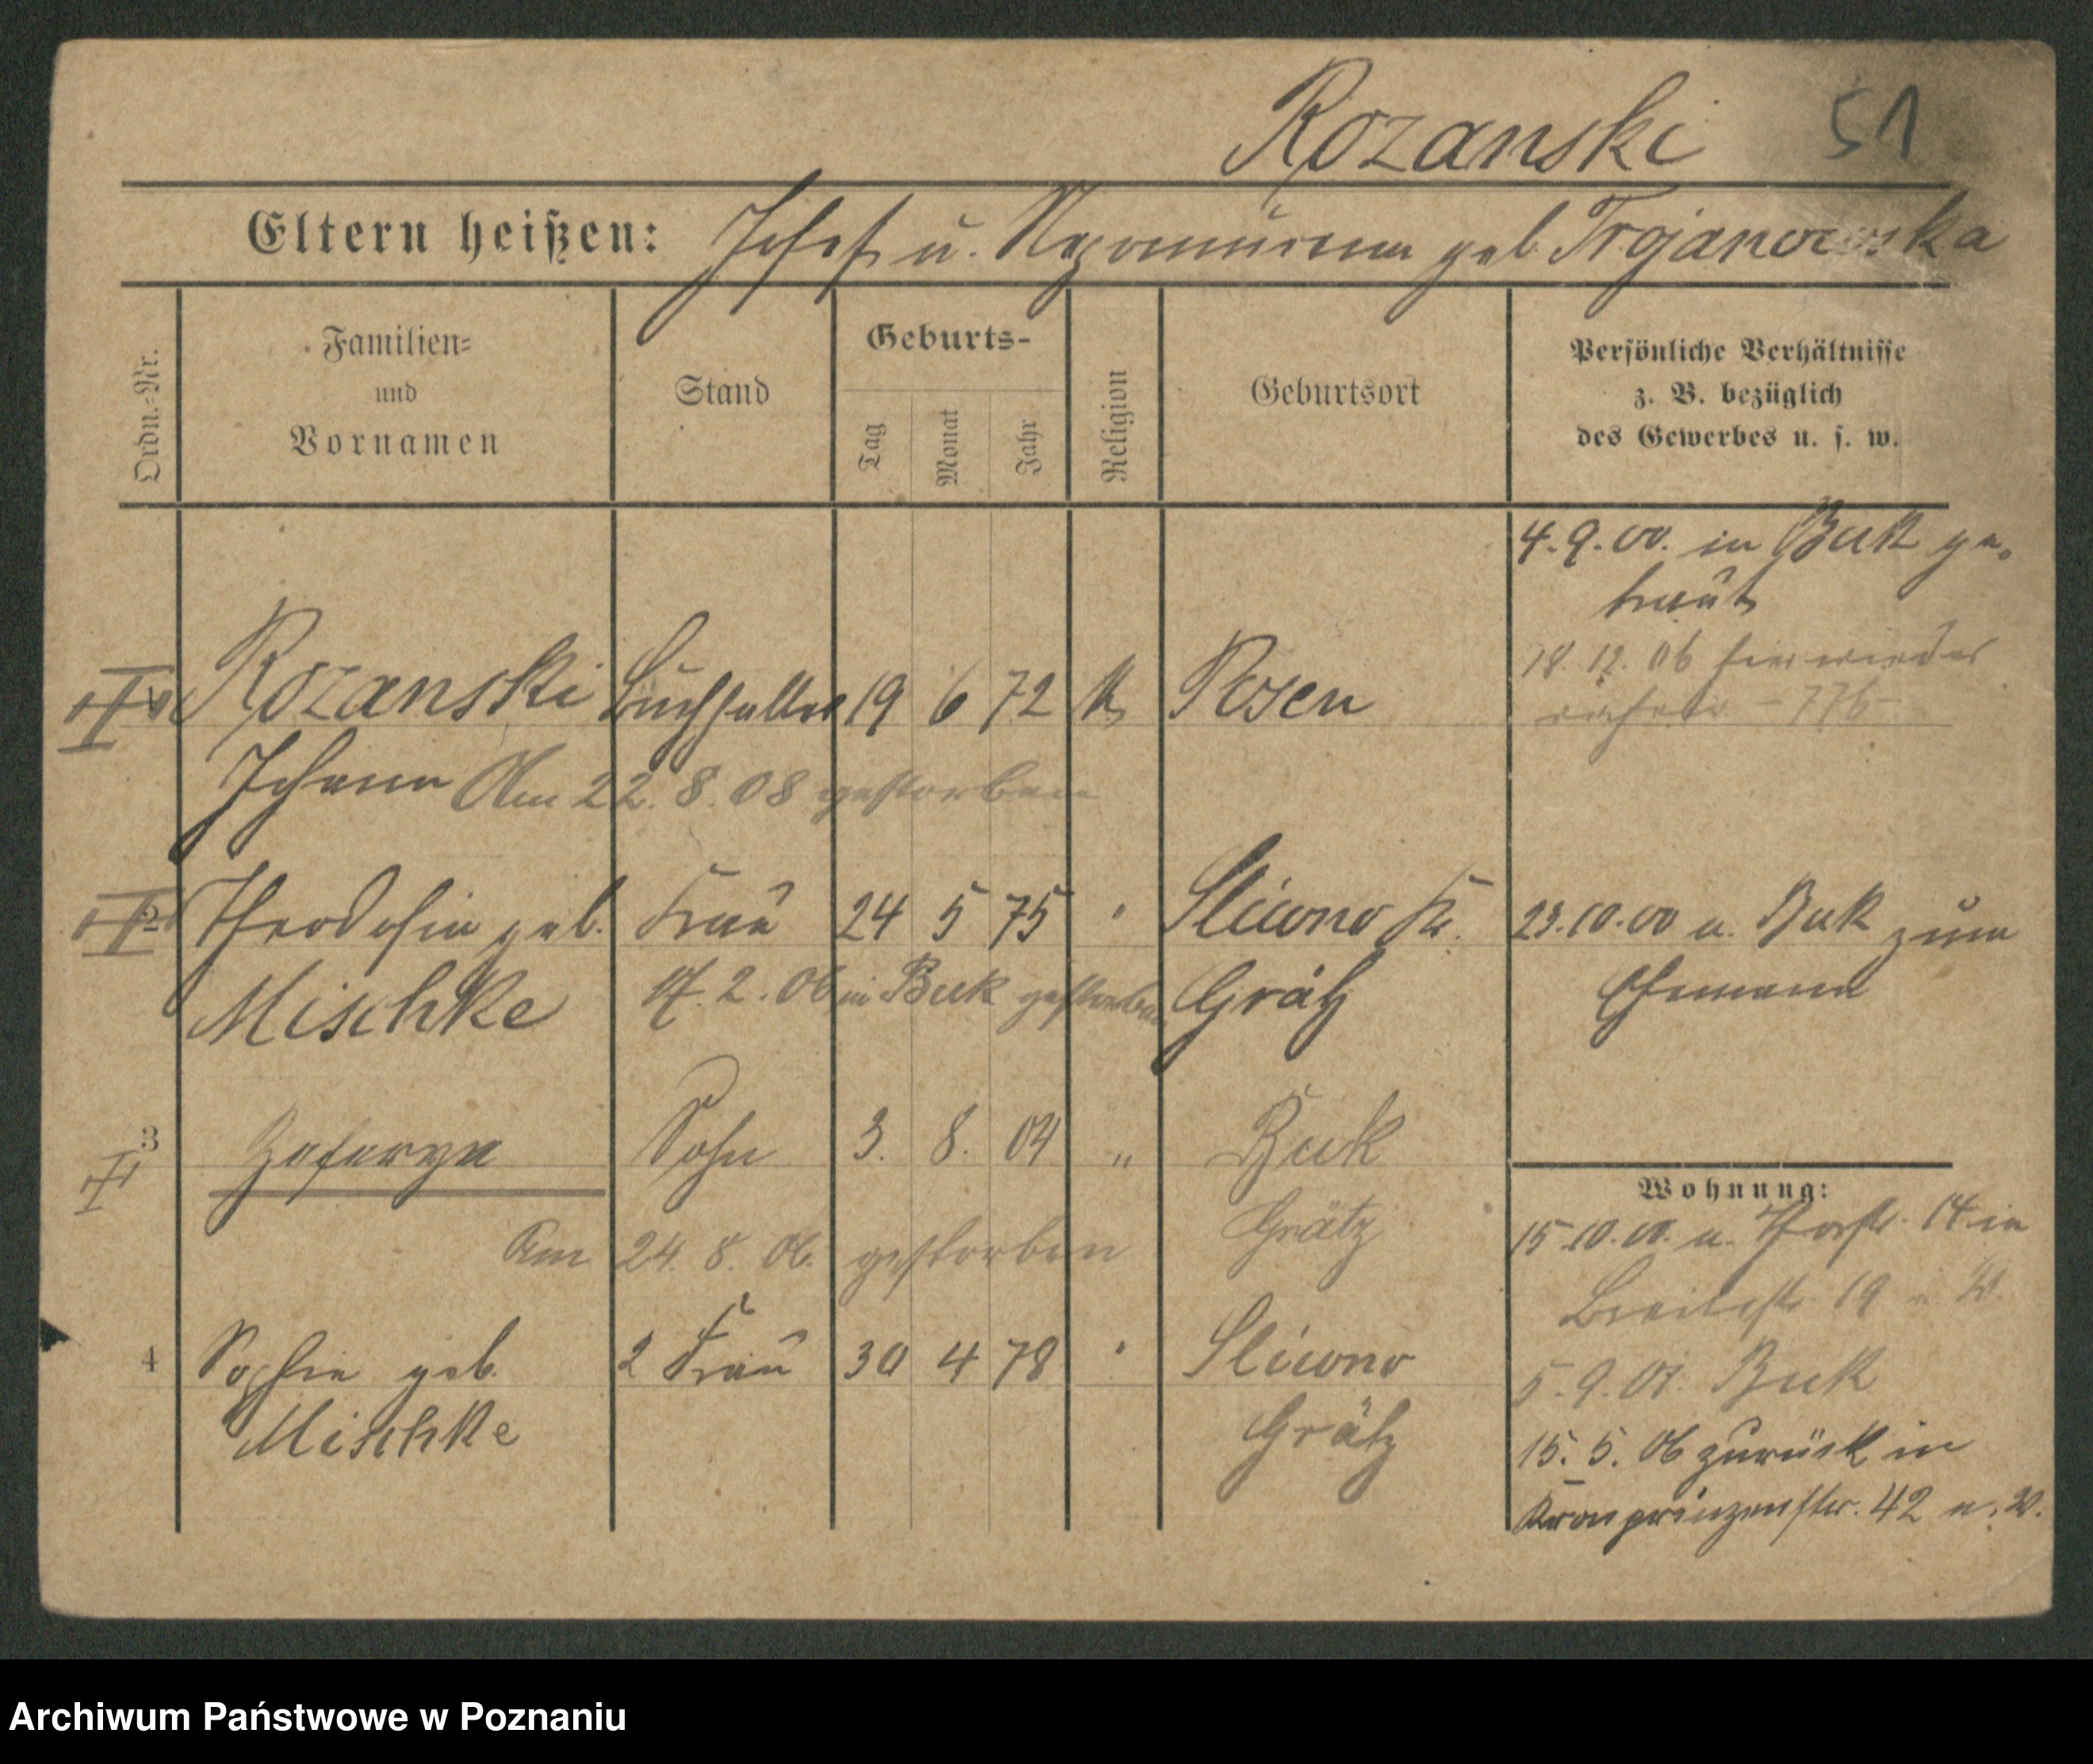 Rozanski 51
Eltern heißen: Josef u. geb. Trojanowska
Ordn.-Nr.
Familien=
und
Vornamen
Stand
Geburts-
Tag
Monat
Jahr
Religion
Geburtsort
Persönliche Verhältnisse
z. B. bezüglich
des Gewerbes u. s. w.
4. 9. 00. in Buk ge-
traut
18. 12. 06 hier wieder
- 776 -
Rozanski Buchhalter 19 6 72 k Posen
Johann Am 22. 8. 08 gestorben
2 Theodosia geb. Frau 24 5 75 " Sliwno Kr. 23. 10. 00 a. Buk zum
Mischke 17. 2. 06 in Buk gestorben Grätz Ehemann
3 Sohn 3. 8. 04 " Buk
Wohnung:
Grätz
15. 10. 00. a. 14 in
Am 24. 8. 06. gestorben
Breitestr. 19 n. W.
4 Sophie geb. 2 Frau 30 4 78 " Sliwno
5. 9. 01. Buk
Mischke Grätz
15. 5. 06 zurück in
Kronprinzenstr. 42 n. W.
Archiwum Państwowe w Poznaniu